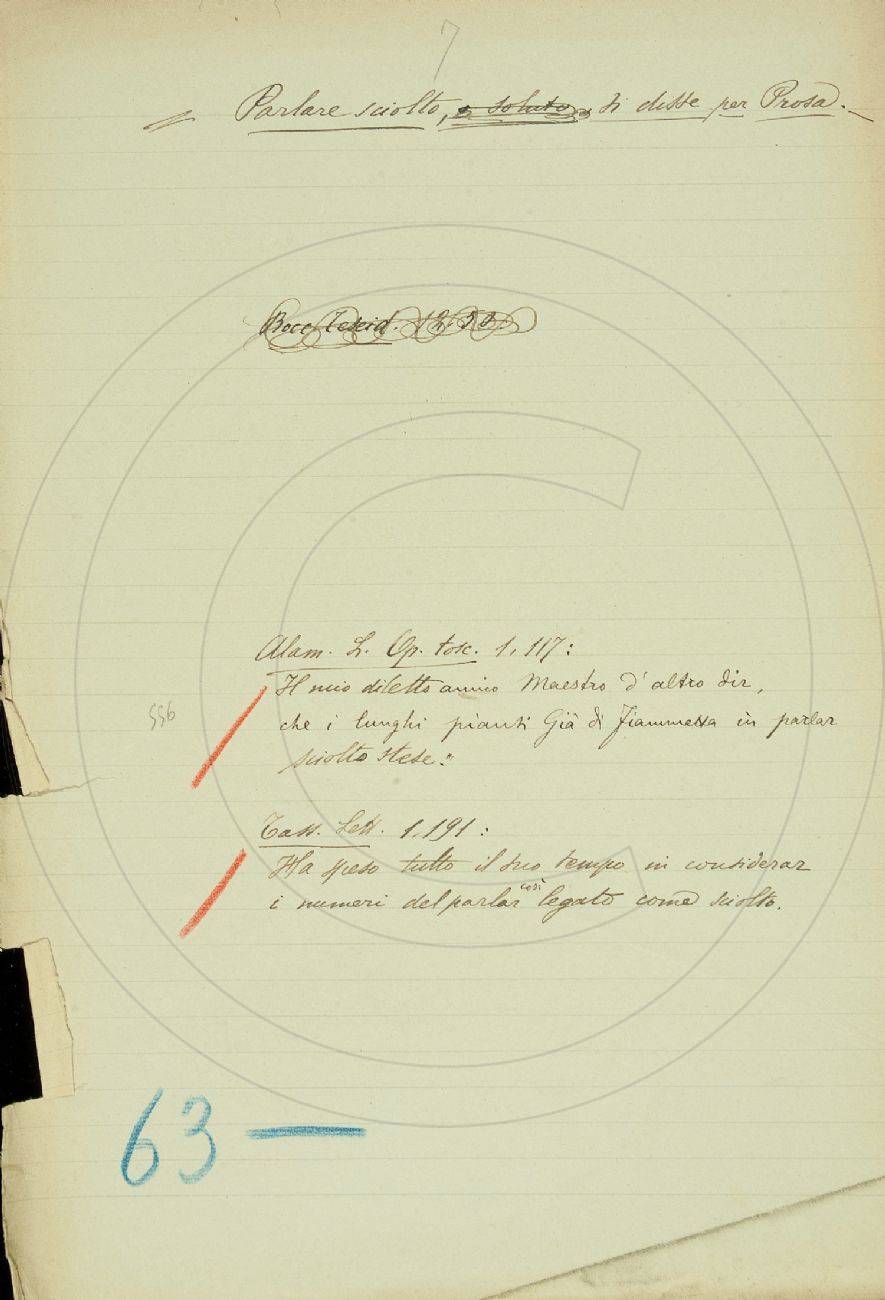 7
Parlare sciolto, o soluto, si disse per Prosa.
Bocc. Teseid. 12.
Alam. L. Op. tosc. 1. 117:
Il mio diletto amico Maestro d'altro dir,
che i lunghi pianti Già di Fiammetta in parlar
sciolto stese."
556
Tass. Lett. 1. 191:
Ha speso tutto il suo tempo in considerar
i numeri del parlar così legato come sciolto.
63 —